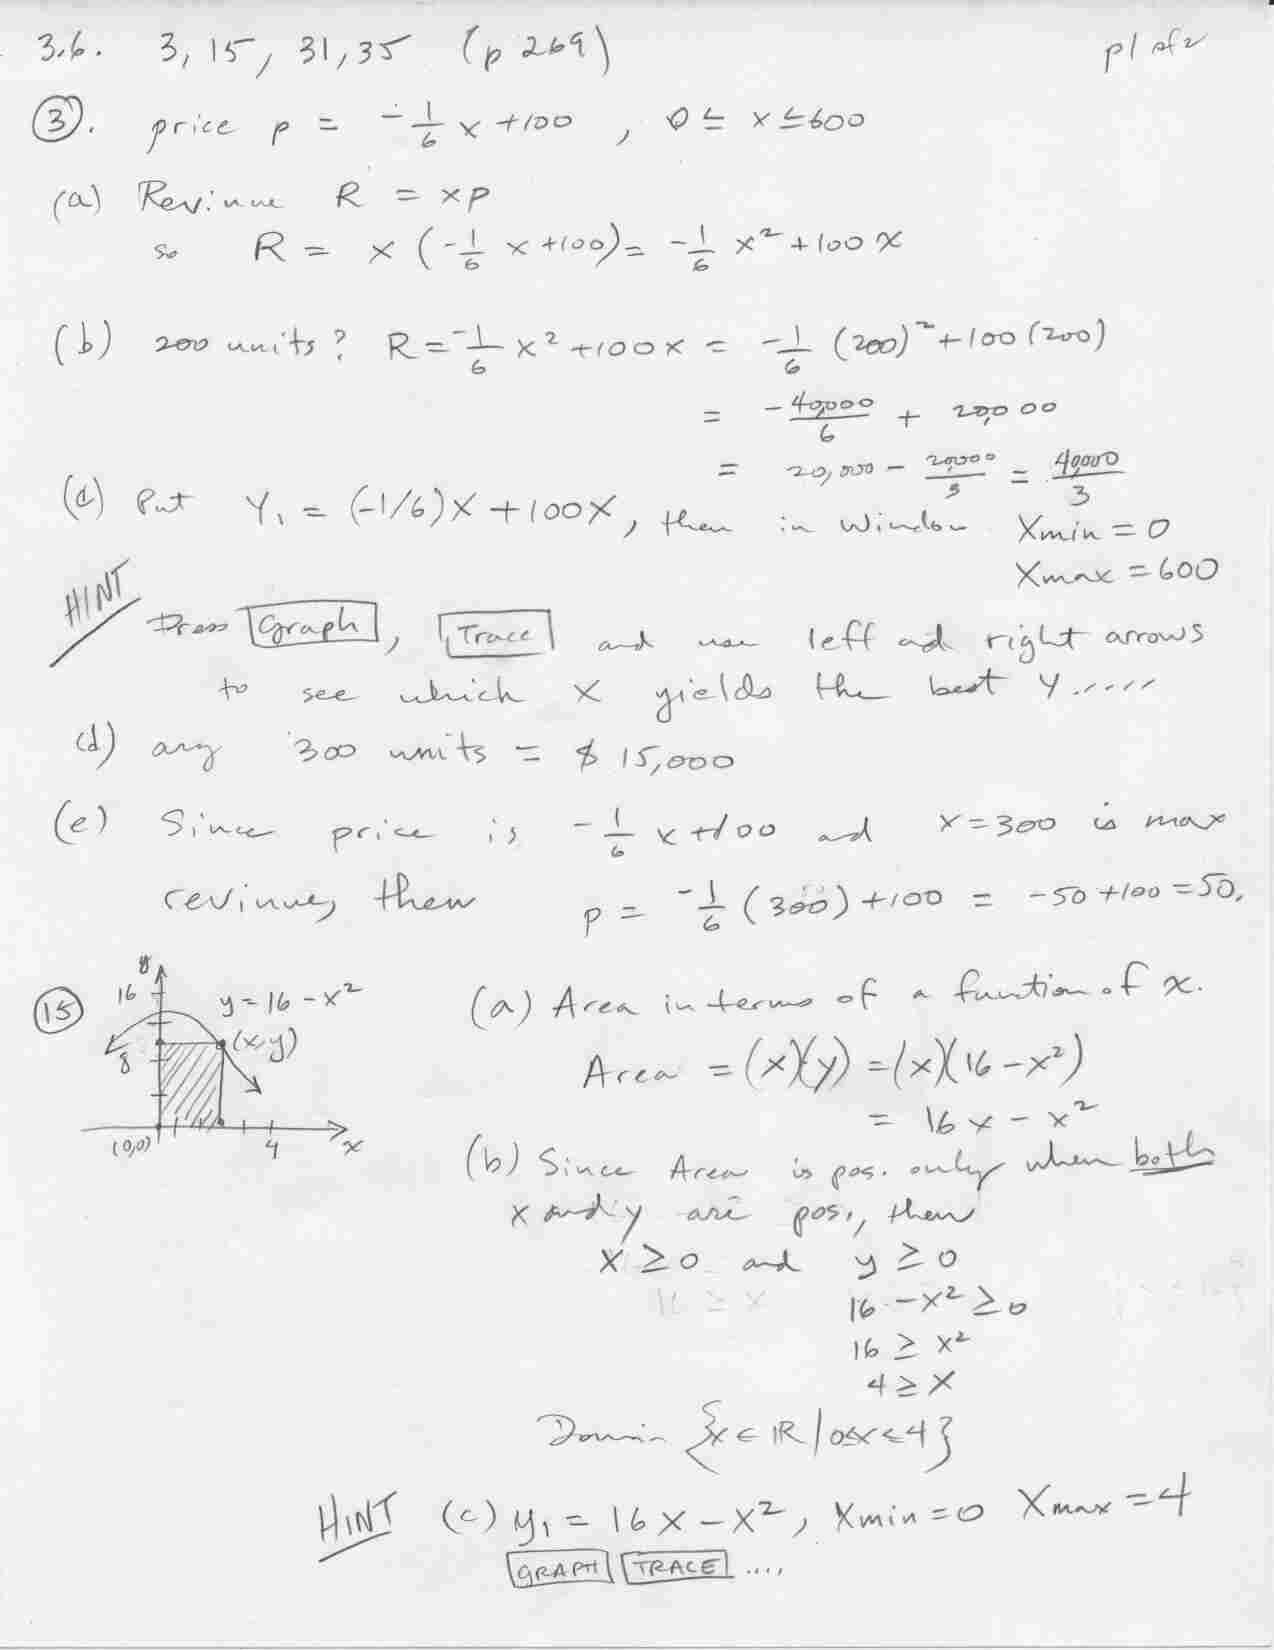 3.6. 3, 15, 31, 35 (p 269) p1 of 2
③. price p = -1/6 x + 100 , 0 ≤ x ≤ 600
(a) Revinue R = xp
so R = x (-1/6 x + 100) = -1/6 x² + 100 x
(b) 200 units? R = -1/6 x² + 100x = -1/6 (200)² + 100 (200)
= -40,000/6 + 20,000
= 20,000 - 20,000/3 = 40,000/3
(c) Put Y₁ = (-1/6)X + 100X, then in Window Xmin = 0
Xmax = 600
HINT
Press Graph, Trace and use left ad right arrows
to see which X yields the best Y.....
(d) avg 300 units = $ 15,000
(e) Since price is -1/6 x + 100 ad x = 300 is max
revinue, then p = -1/6 (300) + 100 = -50 + 100 = 50.
⑮ y 16 y = 16 - x² (x, y) 8 (0,0) 4 x
(a) Area in terms of a function of x.
Area = (x)(y) = (x)(16 - x²)
= 16x - x²
(b) Since Area is pos. only when both
x and y are pos., then
x ≥ 0 and y ≥ 0
16 - x² ≥ 0
16 ≥ x²
4 ≥ x
Domain {x ∈ ℝ | 0 ≤ x ≤ 4}
HINT (c) y₁ = 16x - x², Xmin = 0 Xmax = 4
GRAPH TRACE ....